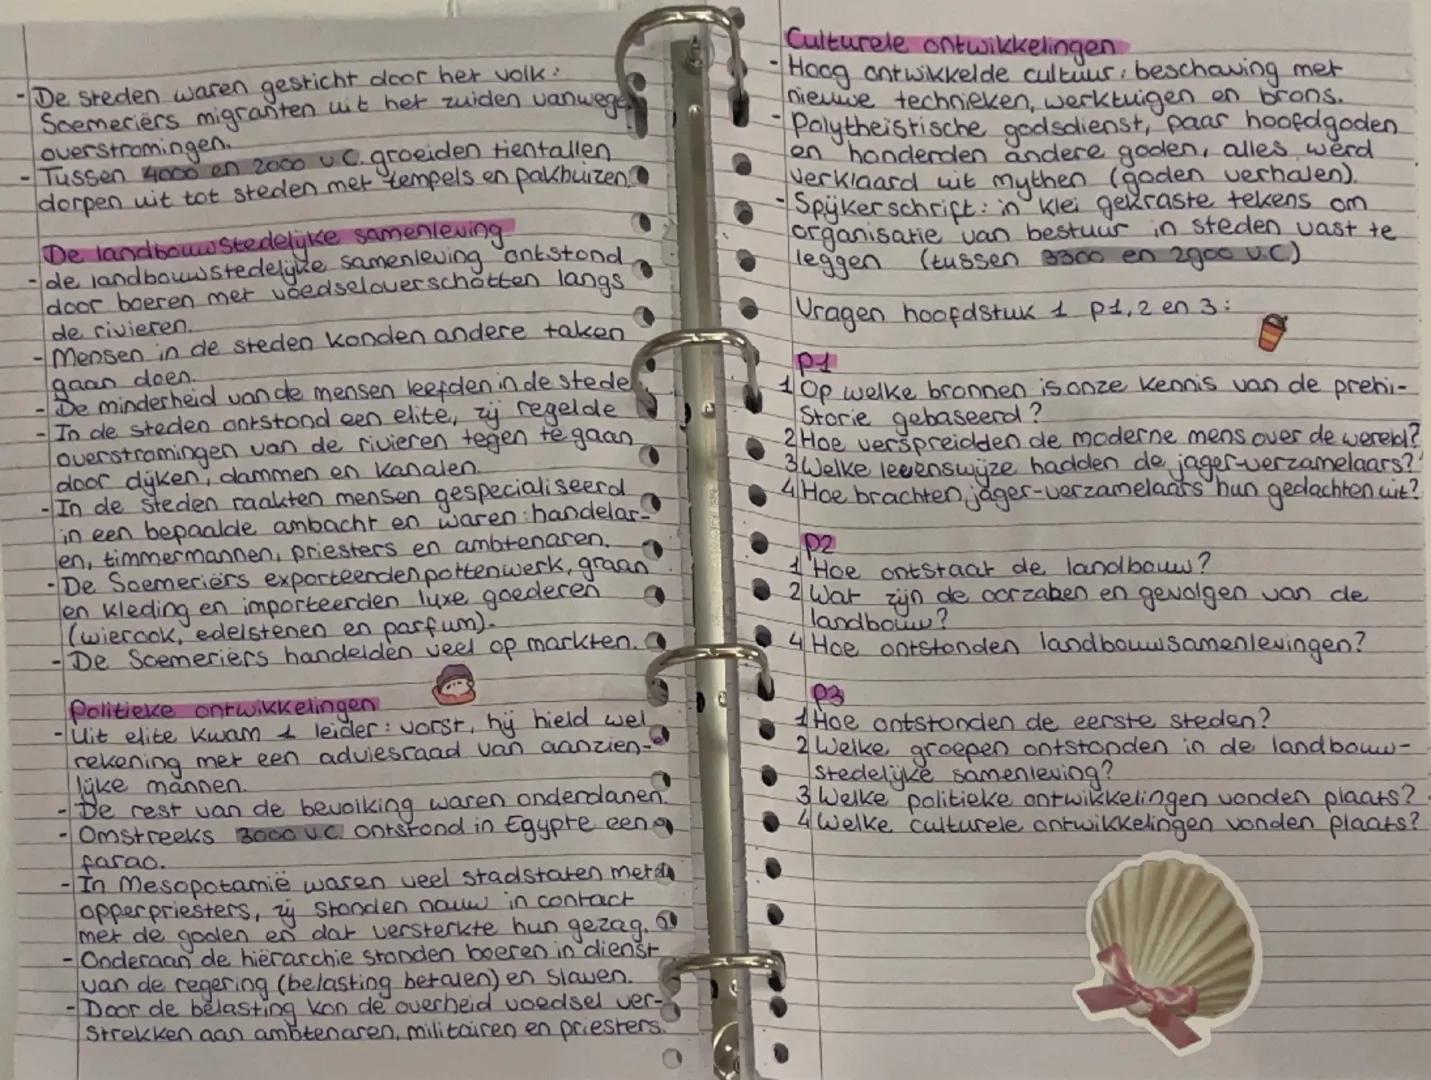 - De steden waren gesticht door het volk:
Soemeriërs migranten uit het zuiden vanwege
overstromingen.
- Tussen 4000 en 2000 v.C. groeiden tientallen
dorpen uit tot steden met tempels en pakhuizen.
De landbouwstedelijke samenleving
- de landbouwstedelijke samenleving ontstond
door boeren met voedseloverschotten langs
de rivieren.
- Mensen in de steden konden andere taken
gaan doen.
- De minderheid van de mensen leefden in de stede
- In de steden ontstond een elite, zij regelde
overstromingen van de rivieren tegen te gaan
door dijken, dammen en kanalen.
- In de steden raakten mensen gespecialiseerd
in een bepaalde ambacht en waren: handelar-
en, timmermannen, priesters en ambtenaren.
- De Soemeriërs exporteerden pottenwerk, graan
en kleding en importeerden luxe goederen
(wierook, edelstenen en parfum).
- De Soemeriërs handelden veel op markten.
Politieke ontwikkelingen
- Uit elite kwam 1 leider: vorst, hij hield wel
rekening met een adviesraad van aanzien-
lijke mannen.
- De rest van de bevolking waren onderdanen.
- Omstreeks 3000 v.C. ontstond in Egypte een
farao.
- In Mesopotamië waren veel stadstaten met
opperpriesters, zij stonden nauw in contact
met de goden en dat versterkte hun gezag.
- Onderaan de hiërarchie stonden boeren in dienst
van de regering (belasting betalen) en slaven.
- Door de belasting kon de overheid voedsel ver-
strekken aan ambtenaren, militairen en priesters.
Culturele ontwikkelingen
- Hoog ontwikkelde cultuur: beschaving met
nieuwe technieken, werktuigen en brons.
- Polytheistische godsdienst, paar hoofdgoden
en honderden andere goden, alles werd
verklaard uit mythen (goden verhalen).
- Spijkerschrift: in klei gekraste tekens om
organisatie van bestuur in steden vast te
leggen (tussen 3300 en 2900 v.C)
Vragen hoofdstuk 1 p1, 2 en 3:
p1
1 Op welke bronnen is onze kennis van de prehi-
storie gebaseerd?
2 Hoe verspreidden de moderne mens over de wereld?
3 Welke levenswijze hadden de jager-verzamelaars?
4 Hoe brachten jager-verzamelaars hun gedachten uit?
p2
1 Hoe ontstaat de landbouw?
2 Wat zijn de oorzaken en gevolgen van de
landbouw?
4 Hoe ontstonden landbouwsamenlevingen?
p3
1 Hoe ontstonden de eerste steden?
2 Welke groepen ontstonden in de landbouw-
stedelijke samenleving?
3 Welke politieke ontwikkelingen vonden plaats?
4 Welke culturele ontwikkelingen vonden plaats?